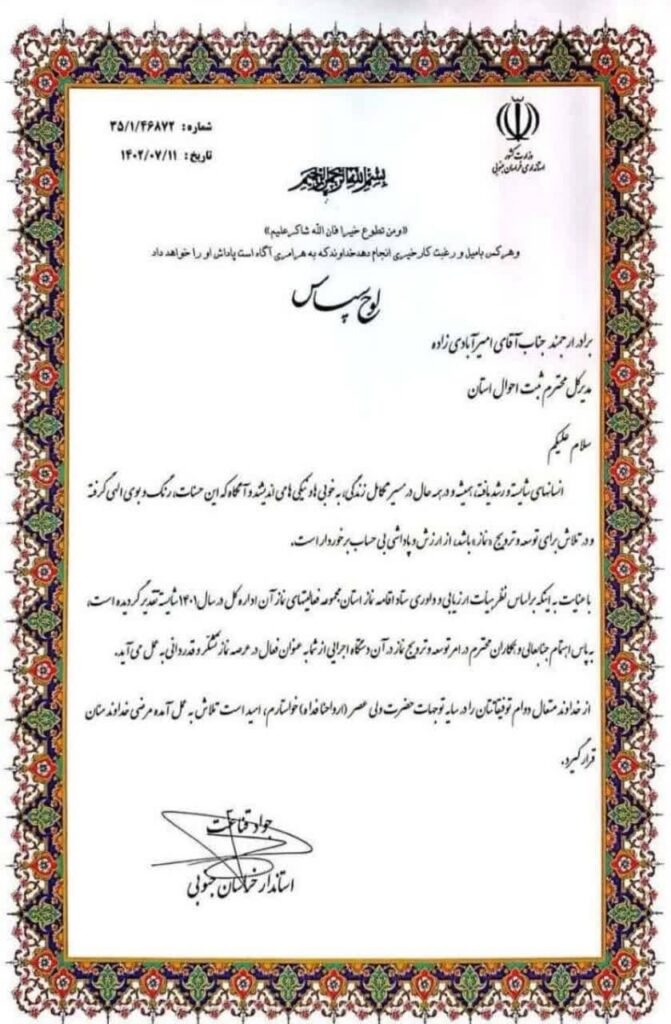 شماره: ۳۵/۱/۴۶۸۷۲
تاریخ: ۱۴۰۲/۰۷/۱۱
وزارت کشور
استانداری خراسان جنوبی
بسم الله الرحمن الرحیم
«ومن تطوع خیرا فان الله شاکر علیم»
وهرکس بامیل و رغبت کار خیری انجام دهد خداوند که به هر امری آگاه است پاداش او را خواهد داد
لوح سپاس
برادر ارجمند جناب آقای امیرآبادی زاده
مدیرکل محترم ثبت احوال استان
سلام علیکم
انسانهای شایسته و رشد یافته، همیشه و در همه حال در مسیر تکامل زندگی، به خوبی ها و نیکی ها می اندیشند و آنگاه که این حسنات، رنگ و بوی الهی گرفته
و در تلاش برای توسعه و ترویج «نماز» باشد، از ارزش و پاداشی بی حساب برخوردار است.
با عنایت به اینکه براساس نظر هیأت ارزیابی و داوری ستاد اقامه نماز استان مجموعه فعالیتهای نماز آن اداره کل در سال ۱۴۰۱ شایسته تقدیر گردیده است،
به پاس اهتمام جنابعالی و همکاران محترم در امر توسعه و ترویج نماز در آن دستگاه اجرایی از شما به عنوان فعال در عرصه نماز تشکر و قدردانی به عمل می آید.
از خداوند متعال دوام توفیقاتتان را در سایه توجهات حضرت ولی عصر (ارواحنا فداه) خواستارم، امید است تلاش به عمل آمده مرضی خداوند منان
قرار گیرد.
جواد قناعت
استاندار خراسان جنوبی